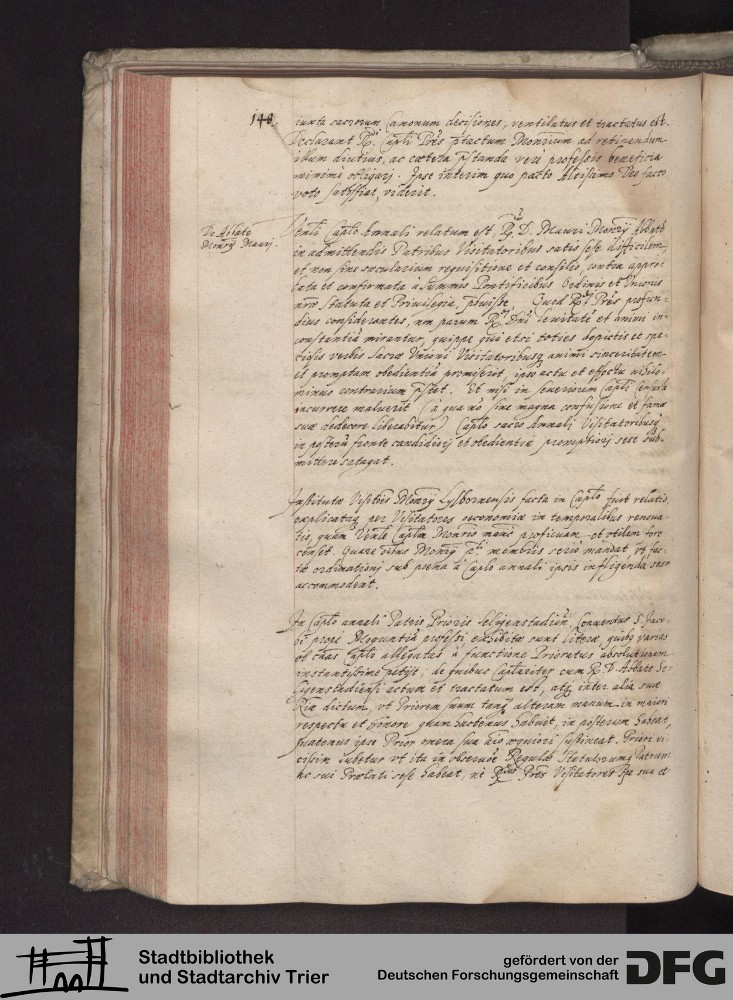 148.
iuxta sacrorum Canonum decisiones, ventilatus et tractatus est.
Declarant R.di Capli Prēs ptactum Monrium ad retinendum
illum diutius, ac cætera pstanda veré professis beneficia
minimé obligari. Ipse interim quo pacto Altissimo Deo facto
voto satisfiat, viderit.
De Abbate
Monrij Mauri.
Venli Caplo Annali relatum est, R. D. Mauri Monrij Abbatē
in admittendis Patribus Visitatoribus satis sese difficilem,
et non sine sæcularium requisitione et consilio, contra appro-
bata et confirmata á Summis Pontificibus Ordinis et Unionis
nræ Statuta et Privilegia, Quod R.di Prēs profun-
dius considerantes, non parum R. Dni levitatē et animi in-
constantiā mirantur, quippe qui etsi toties depictis et spe-
ciosis verbis Sacræ Unioni Visitatoribusq animi sinceritatem
et promptam obedientiā promiserit, ipso actu et effectu nihilo-
minus contrarium pstet. Et nisi in severiorem Capli Censurā
incurrere maluerit (á qua nō sine magna confusione et famæ
suæ dedecore liberabitur) Caplo sacro Annali Visitatoribusq
in posterū fronte candidiori et obedientiæ promptiori sese sub-
mittere satagat.
Institutæ Visitōis Monrij Lysbornensis facta in Caplo fuit relatio,
explicatáq per Visitatores œconomiæ in temporalibus renova-
tio, quam Venle Caplm Monrio proficuam et utilem fore
censet. Quare oibus Monrij pti membris serió mandat, vt fac-
tæ ordinationi sub pœna á Caplo annali ipsis infligenda sese
accommodent.
In Caplo annali Patris Prioris Seligenstadien. Conventus S. Jaco-
bi propé Moguntiā professi exhibitæ sunt literæ, quibq varias
ob cāas Caplo allegatas á functione Prioratus absolutionem
instantissimé petijt; de quibus Caplariter cum R. D. Abbate Se-
ligenstadiensi actum et tractatum est, atq inter alia suæ
Rᵃᵉ dictum, vt Priorem suum tanq alteram manum in maiori
respectu et honore quam hactenus habuit, in posterum habeat,
quatenus ipse Prior onera sua aīo æquiori sustineat. Priori vi-
cissim iubetur vt ita in observāe Regulæ Statutorumq Patrum
ac sui Prælati sese habeat, ne R.di Prēs Visitatores Rᵃᵉ suæ et
Stadtbibliothek
und Stadtarchiv Trier
gefördert von der
Deutschen Forschungsgemeinschaft
DFG